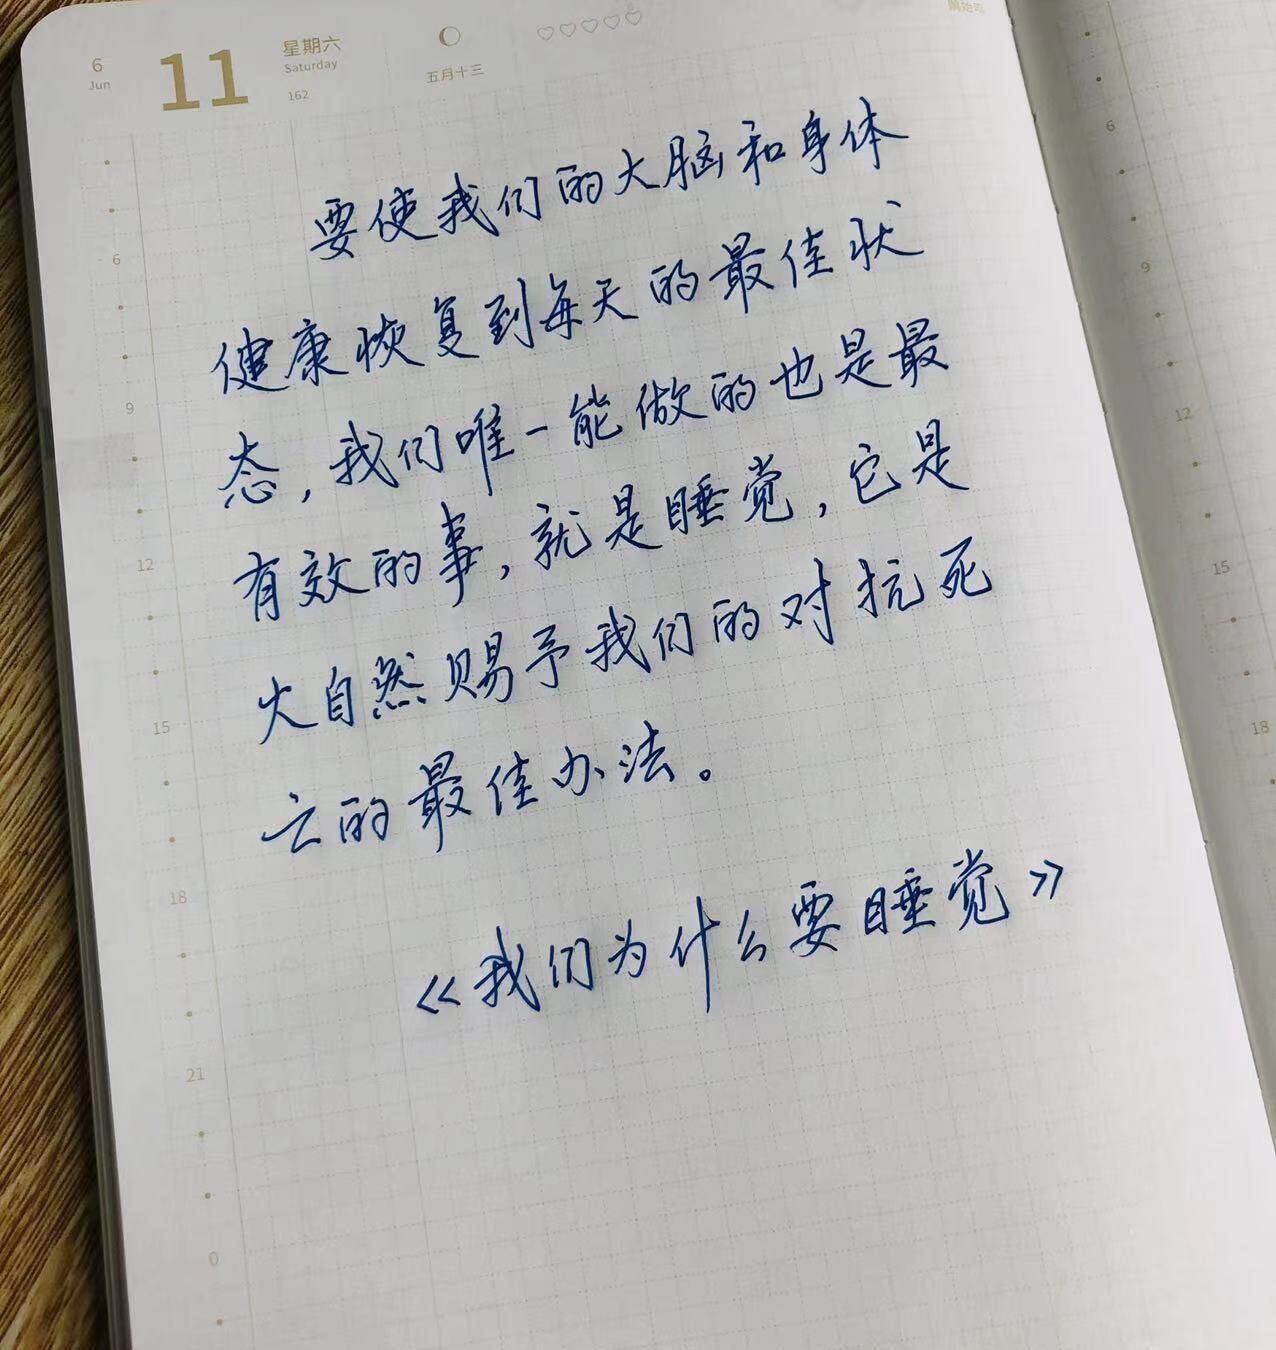 6
Jun
11
星期六
Saturday
162
五月十三
要使我们的大脑和身体
健康恢复到每天的最佳状
态，我们唯一能做的也是最
有效的事，就是睡觉，它是
大自然赐予我们的对抗死
亡的最佳办法。
《我们为什么要睡觉》
6
9
12
15
18
21
0
6
9
12
15
18